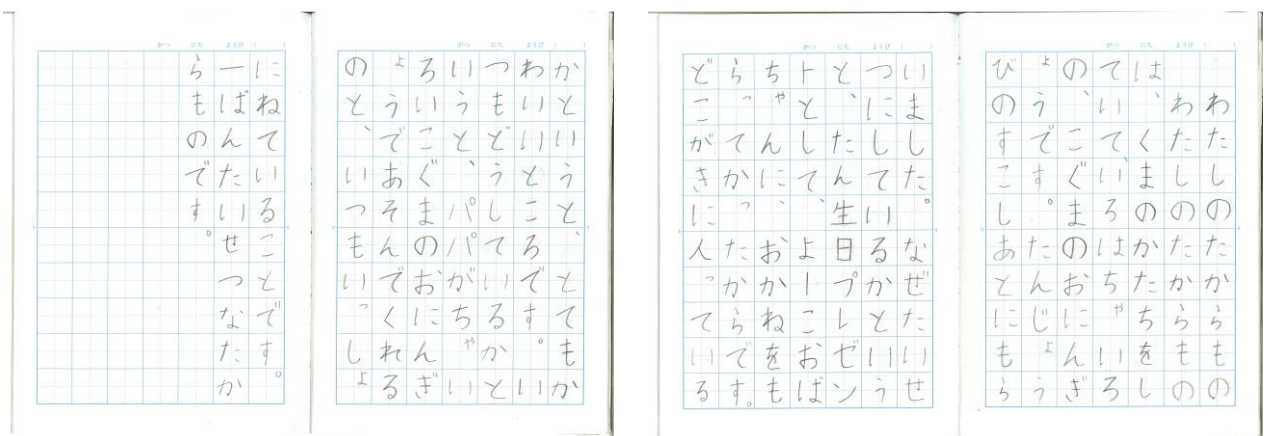 わたしのたからもの
わたしのたからもの
は、くまのかたちをし
ていて、いろはちゃいろ
の、こぐまのおにんぎ
ょうです。たんじょう
びのすこしあとにもら
いました。なぜたいせ
つにしているかという
と、たん生日プレゼン
トとして、よーこおば
ちゃんに、おかねをも
らってかったからです。
どこがきに人っている
かというと、とてもか
わいいところです。い
つもどうしているかと
いうと、パパがちゃい
ろいこぐまのおにんぎ
ょうであそんでくれる
のと、いつもいっしょ
にねていることです。
一ばんたいせつなたか
らものです。